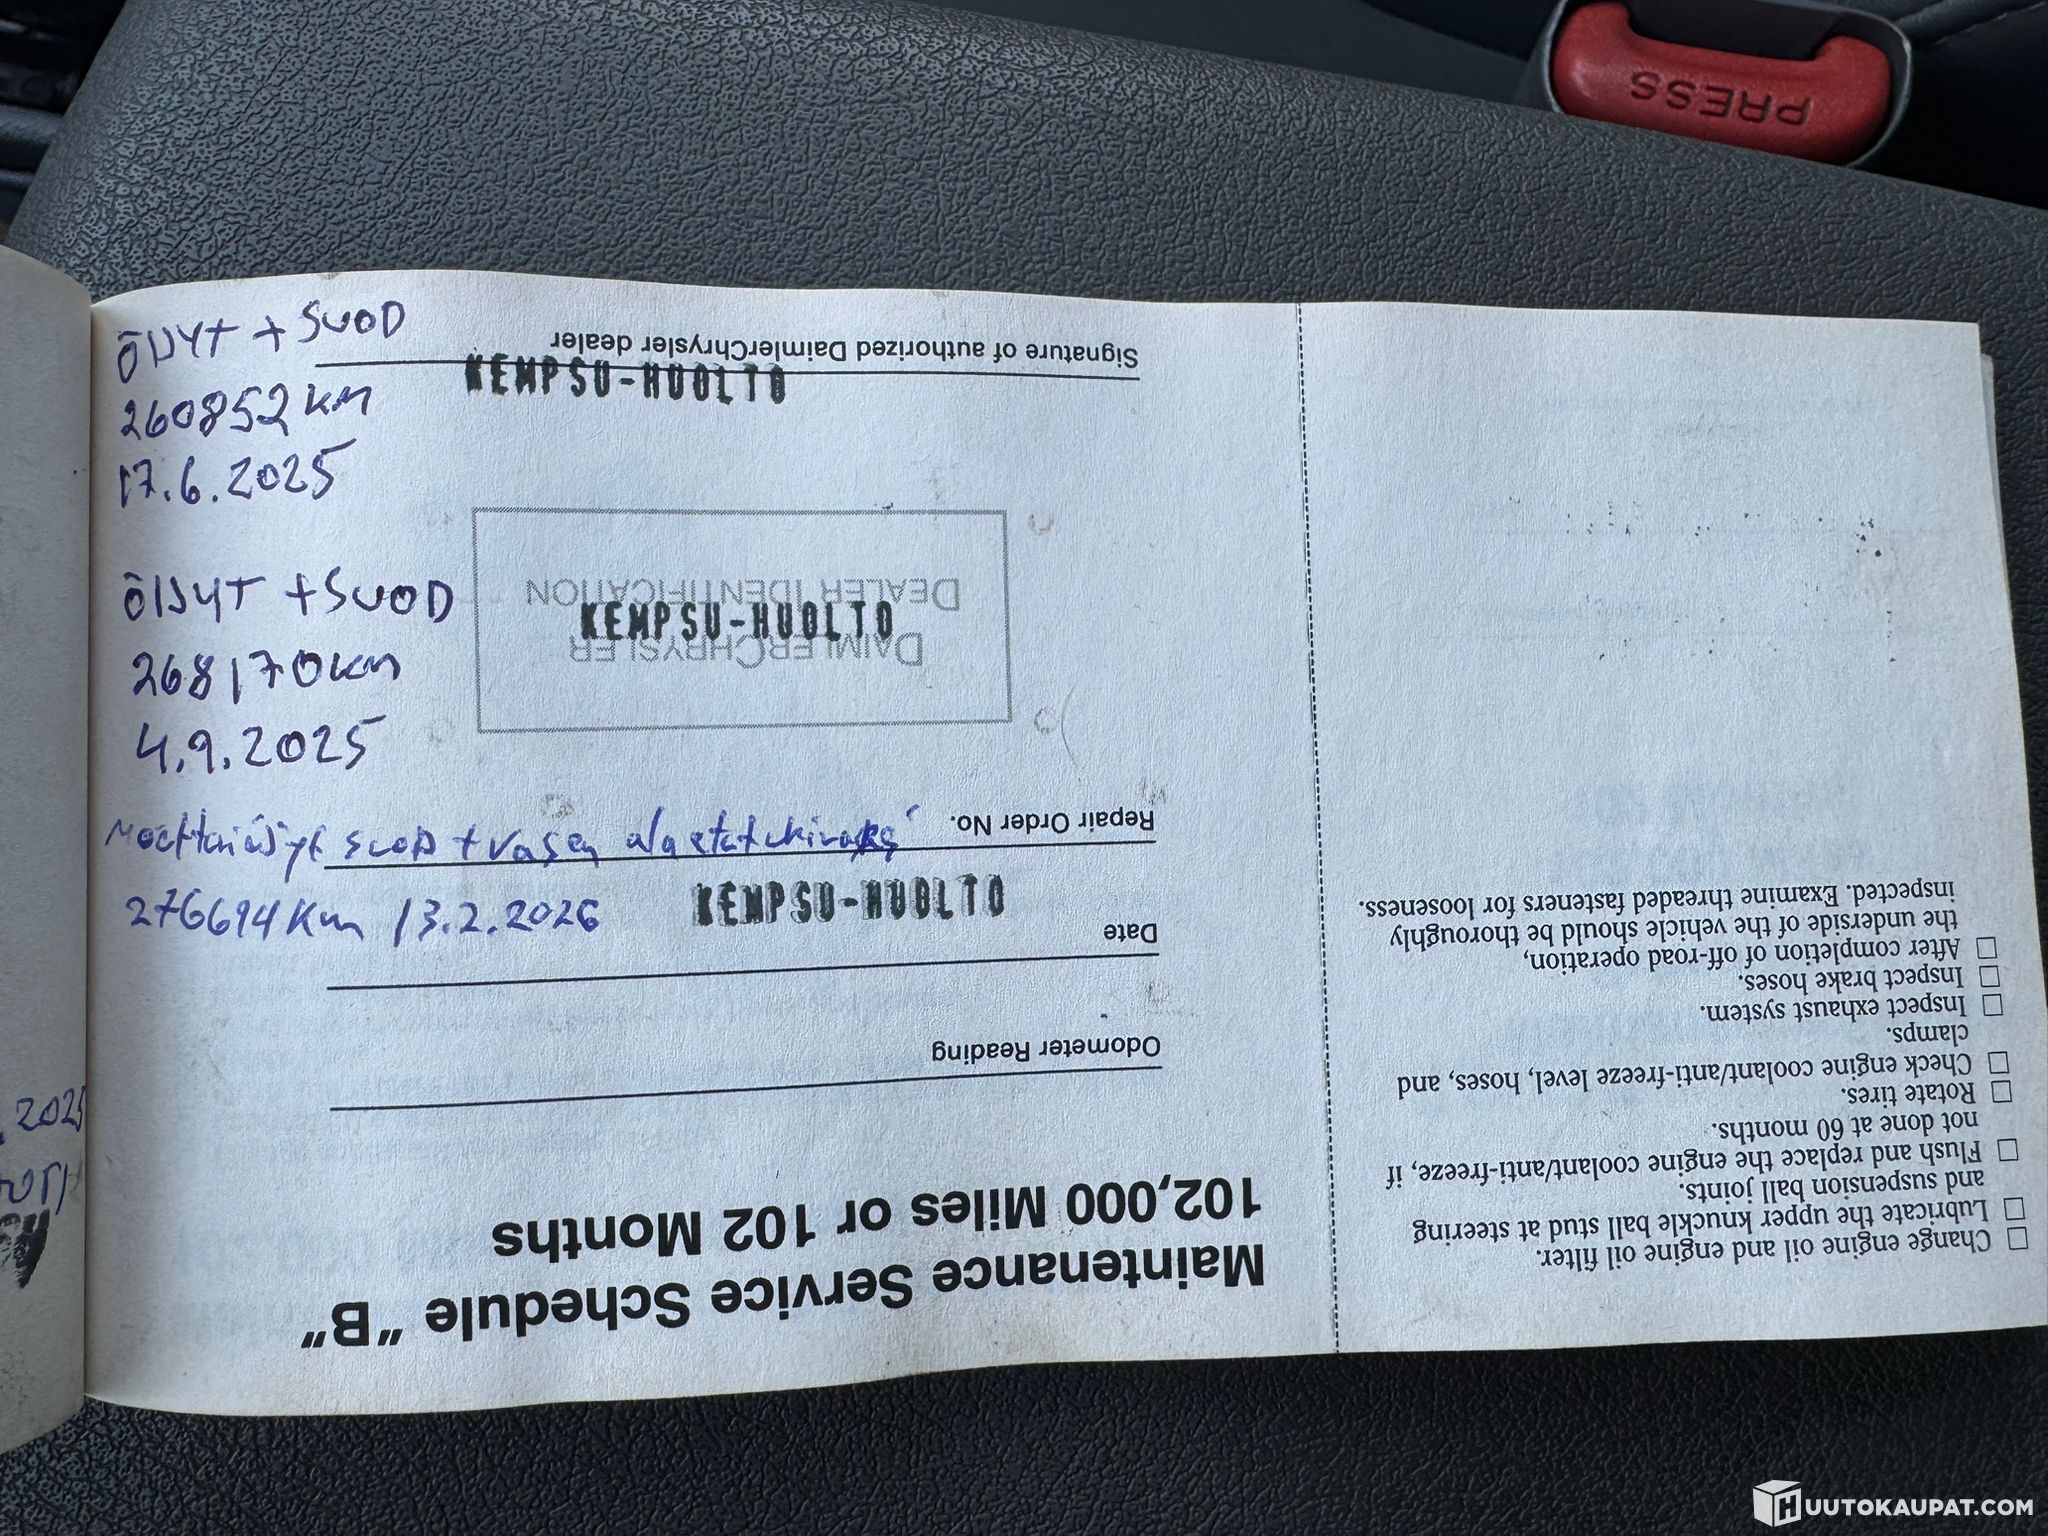 PRESS
ÖLJYT + SUOD
260852 KM
17.6.2025
KEMPSU-HUOLTO
ÖLJYT + SUOD
268170 KM
4.9.2025
KEMPSU-HUOLTO
suod + vasen
276694 Km 13.2.2026
KEMPSU-HUOLTO
. 2025
Maintenance Service Schedule "B"
102,000 Miles or 102 Months
Odometer Reading
Date
Repair Order No.
DAIMLERCHRYSLER
DEALER IDENTIFICATION
Signature of authorized DaimlerChrysler dealer
☐ Change engine oil and engine oil filter.
☐ Lubricate the upper knuckle ball stud at steering
and suspension ball joints.
☐ Flush and replace the engine coolant/anti-freeze, if
not done at 60 months.
☐ Rotate tires.
☐ Check engine coolant/anti-freeze level, hoses, and
clamps.
☐ Inspect exhaust system.
☐ Inspect brake hoses.
☐ After completion of off-road operation,
the underside of the vehicle should be thoroughly
inspected. Examine threaded fasteners for looseness.
HUUTOKAUPAT.COM